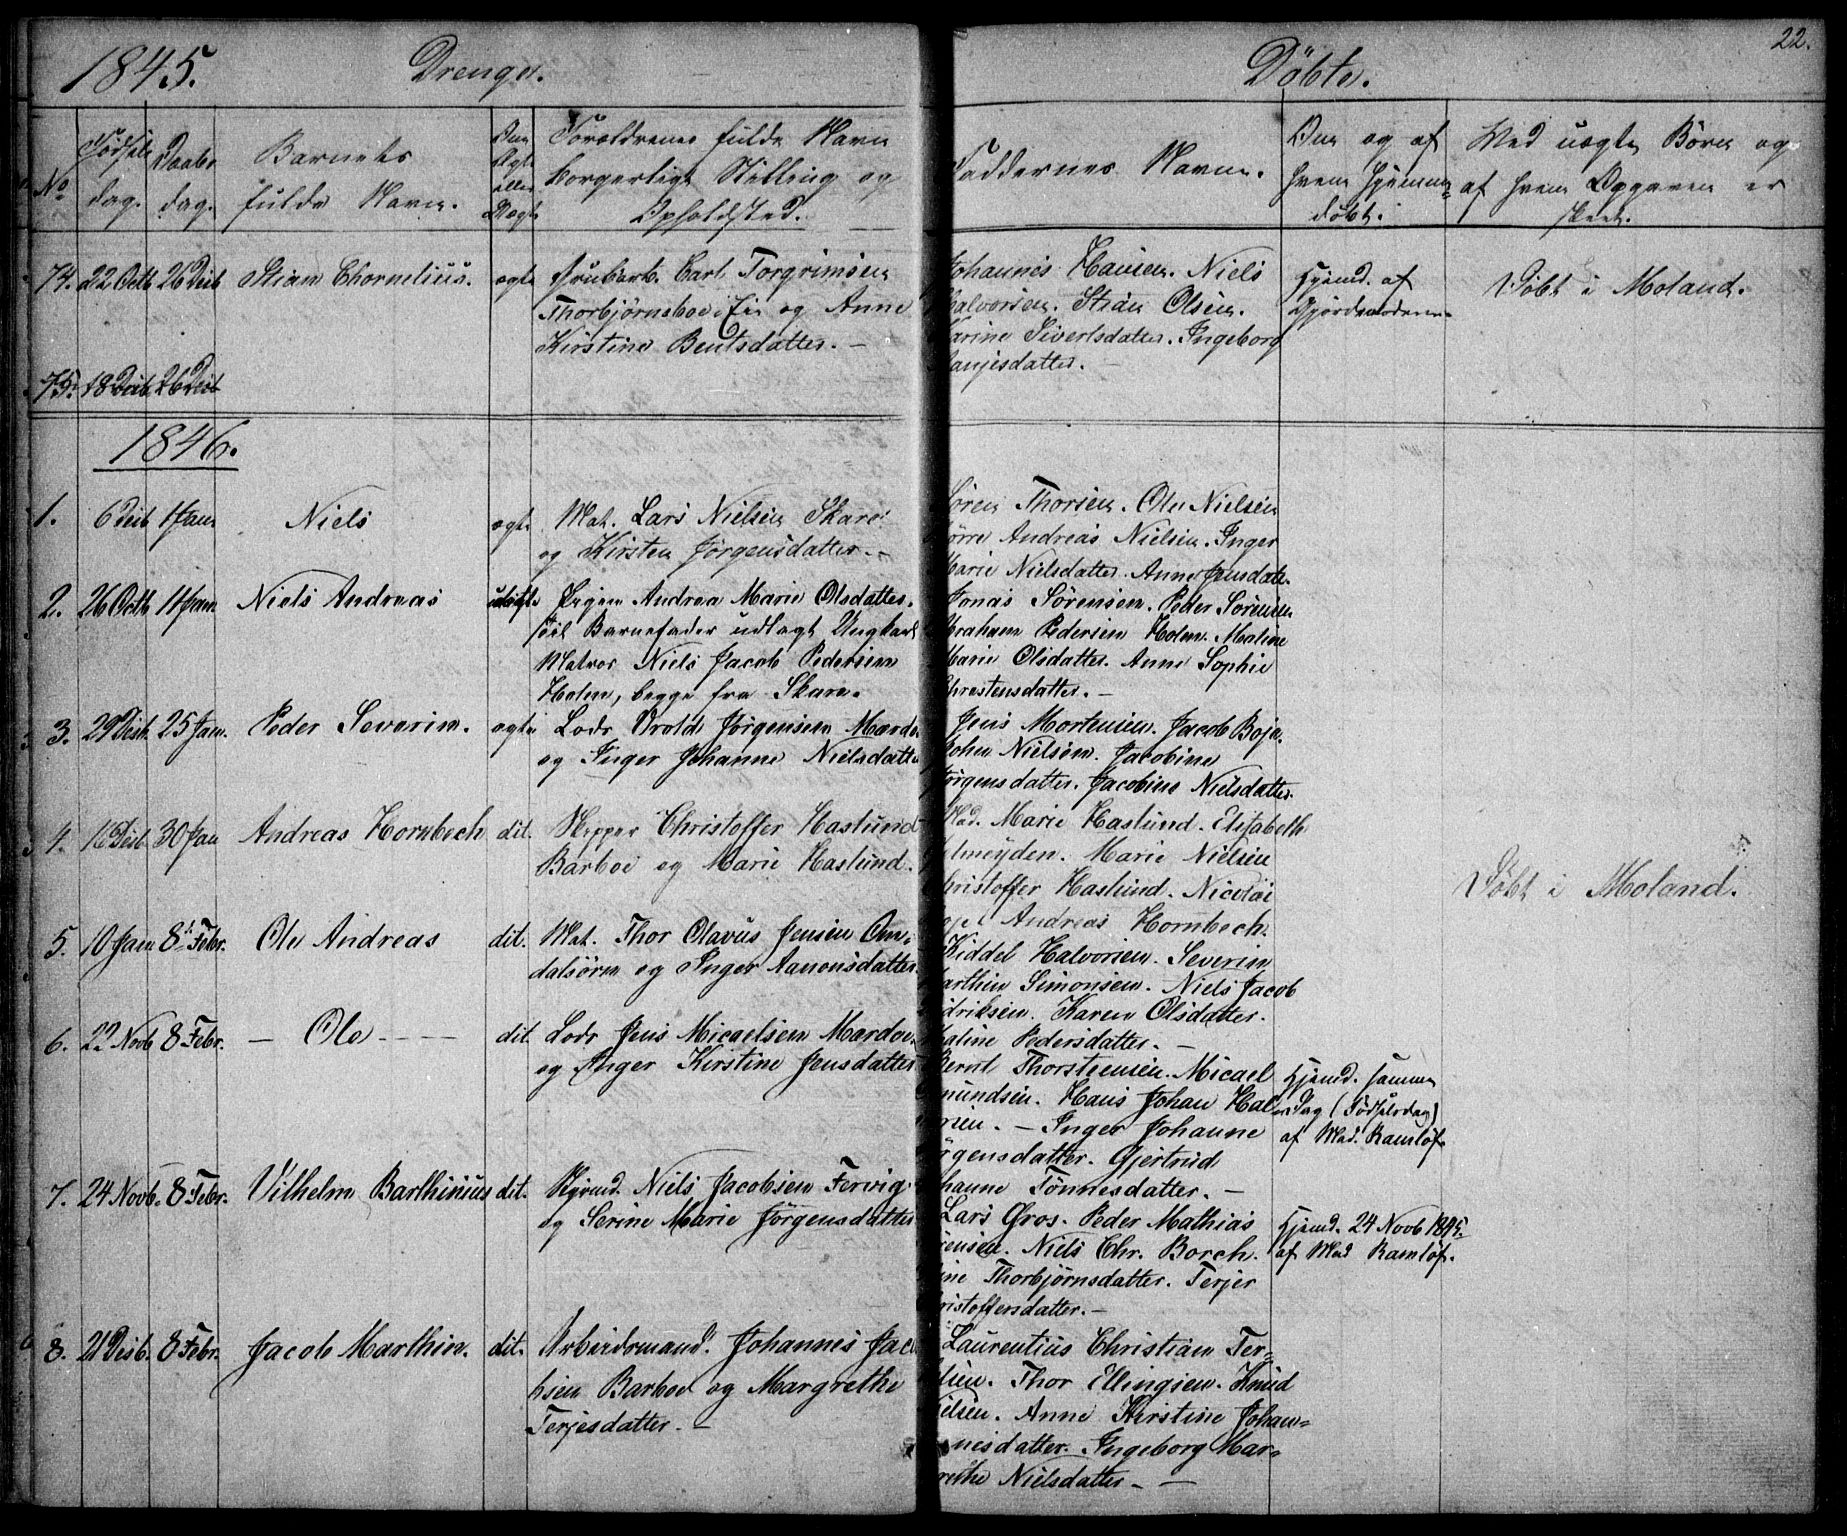 1845. Drenge. Döbte. 22.
No Födsels dag. Daabs dag. Barnets fulde Navn. Om Ægte eller Uægte Forældrenes fulde Navn borgerlige Stilling og Opholdsted. Faddernes Navne. Om og af hvem hjemme= döbt. Ved uægte Börn og af hvem Opgaven er skeet.
74. 22 Octb 26 Decb Chornelius. ægte Carl Torgrimsen
Thorbjørnsboe Eie og Anne
Kirstine Bentsdatter. —
Johannes Hansen. Niels
Halvorsen. Stian Olsen.
Karine Sivertsdatter. Ingeborg
Tanjesdatter.
Hjemd. af
Djördemoderen
Döbt i Moland.
75. 18 Decb 26 Decb
1846.
1. 6 Decb 1 Jan Niels ægte Mat. Lars Nielsen Skare
og Kirsten Jørgensdatter. —
Søren Thorsen. Ole Nielsen
Andreas Nielsen. Inger
Marie Nielsdatter. Anne Jensdatr.
2. 26 Octb 11 Jan Niels Andreas uægte Pigen Andrea Marie Olsdatter.
som Barnefader udlagt Ungkarl
Matros Niels Jacob Pedersen
Holm, begge fra Skare.
Jonas Sörensen. Peder Sörensen
Abraham Pedersen Holm. Maline
Marie Olsdatter. Anne Sophie
Chrestensdatter. —
3. 29 Decb. 25 Jan. Peder Severin. ægte Lods Brold Jørgensen Mardø
og Inger Johanne Nielsdatter
Jens Mortensen. Jacob Boje.
John Nielsen. Jacobine
Jørgensdatter. Jacobine Nielsdatter.
4. 16 Decb. 30 Jan Andreas Hornbech dit. Skipper Christoffer Haslund
Barboe og Marie Haslund.
Mad. Marie Haslund. Elisabeth
Marie Nielsen
Christoffer Haslund. Nicolai
Andreas Hornbech.
Döbt i Moland.
5. 10 Jan 8 Febr. Ole Andreas dit. Mat. Thor Olavus Jensen Om=
dalsøren og Inger Aanonsdatter.
Kiddel Halvorsen. Severin
Marthin Simonsen. Niels Jacob
Fredriksen. Karen Olsdatter.
Maline Pedersdatter. —
6. 22 Novb 8 Febr. — Ole — dit. Lods Jens Micaelsen Mardøe
og Inger Kirstine Jensdatter
Bernt Thorsteensen. Micael
Hans Johan Hal
— Inger Johanne
Jørgensdatter. Gjertrud
Johanne Tönnesdatter. —
Hjemd. samme
Dag (Födselsdag)
af Mad. Ramlöf.
7. 24 Novb. 8 Febr. Vilhelm Barthinius dit. Niels Jacobsen Fervig
og Serine Marie Jörgensdatter
Lars Gros. Peder Mathias
Sørensen. Niels Chr. Borch.
Thorbjørnsdatter. Terjer
Christoffersdatter. —
Hjemd. 24 Novb 1845.
af Mad Ramlöf.
8. 21 Decb. 8 Febr. Jacob Marthin. dit. Arbeidsmand. Johannes Jaco
bsen Barboe og Margrethe
Terjesdatter. —
Laurentius Christian Ter=
Thor Ellingsen. Knud
Nielsen. Anne Kirstine Johan=
nesdatter. Ingeborg Mar=
grethe Nielsdatter. —